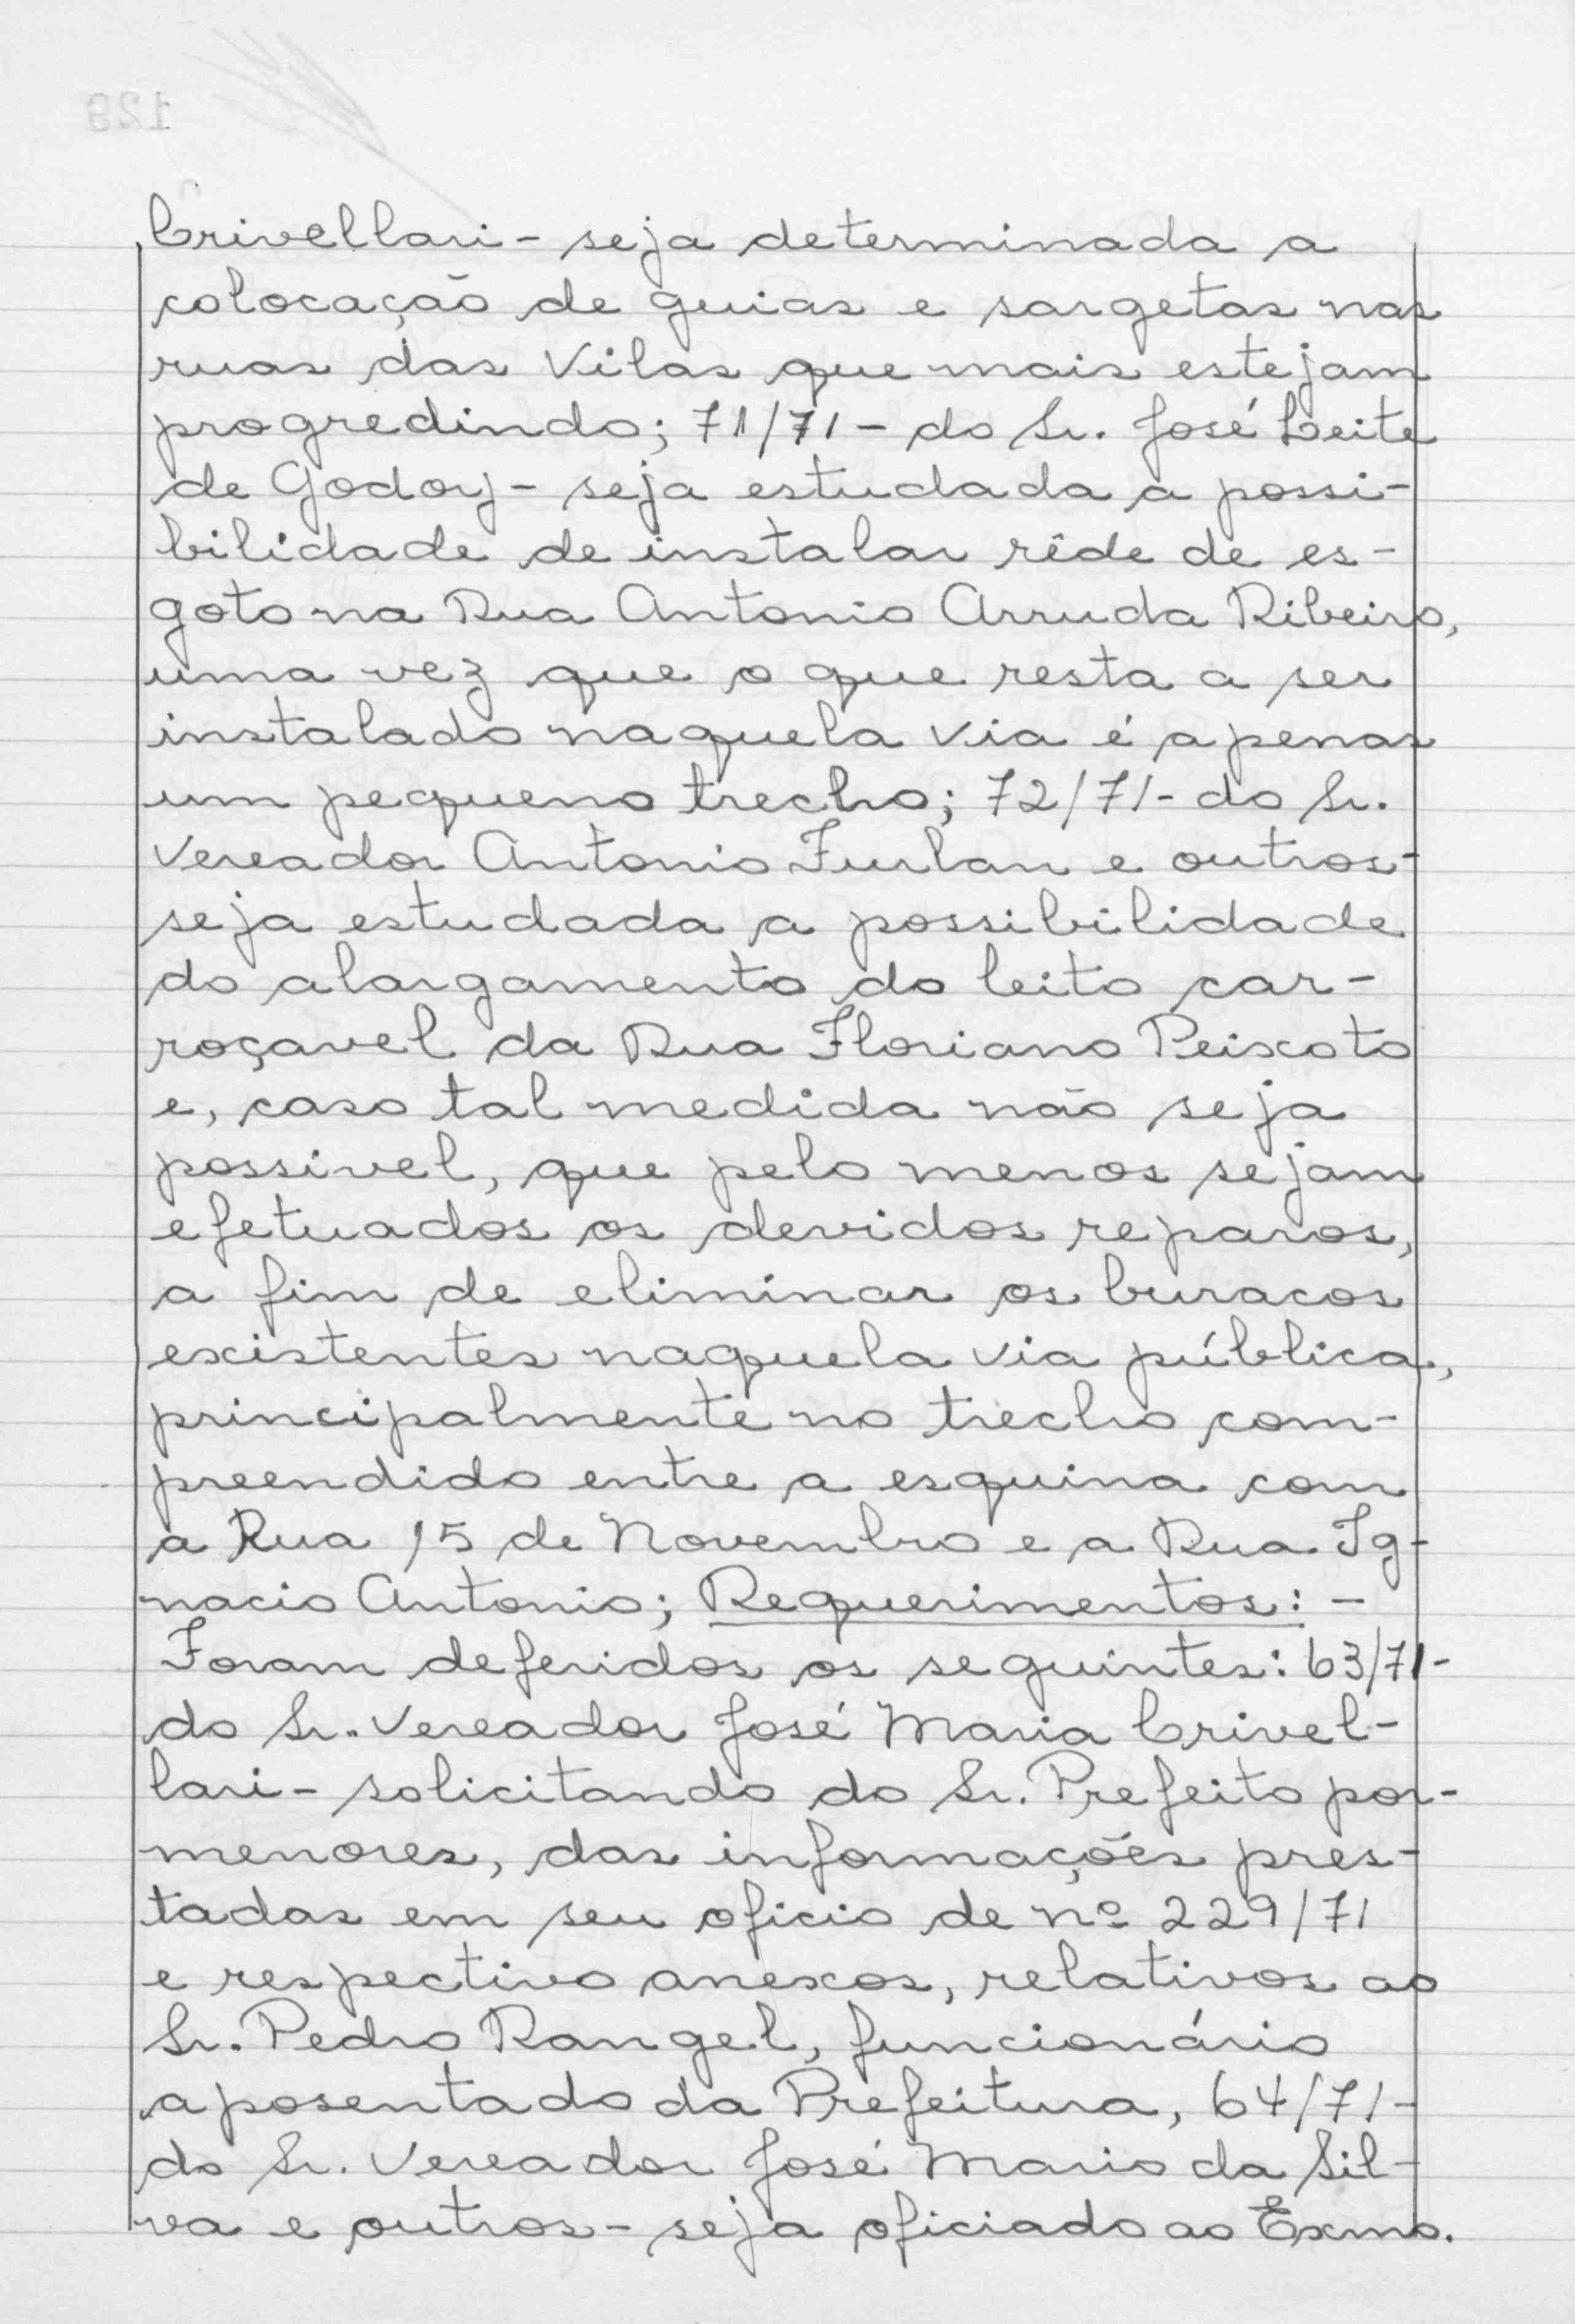 Crivellari - seja determinada a
colocação de guias e sargetas nas
ruas das Vilas que mais estejam
progredindo; 71/71 - do Sr. José Leite
de Godoy - seja estudada a possi-
bilidade de instalar rêde de es-
goto na Rua Antonio Arruda Ribeiro,
uma vez que o que resta a ser
instalado naquela via é apenas
um pequeno trecho; 72/71 - do Sr.
Vereador Antonio Furlan e outros -
seja estudada a possibilidade
do alargamento do leito car-
roçavel da Rua Floriano Peixoto
e, caso tal medida não seja
possivel, que pelo menos sejam
efetuados os devidos reparos,
a fim de eliminar os buracos
existentes naquela via pública,
principalmente no trecho com-
preendido entre a esquina com
a Rua 15 de Novembro e a Rua Ig-
nacio Antonio; Requerimentos: -
Foram deferidos os seguintes: 63/71 -
do Sr. Vereador José Maria Crivel-
lari - solicitando do Sr. Prefeito por-
menores, das informações pres-
tadas em seu oficio de nº 229/71
e respectivo anexos, relativos ao
Sr. Pedro Rangel, funcionário
aposentado da Prefeitura, 64/71 -
do Sr. Vereador José Mario da Sil-
va e outros - seja oficiado ao Exmo.